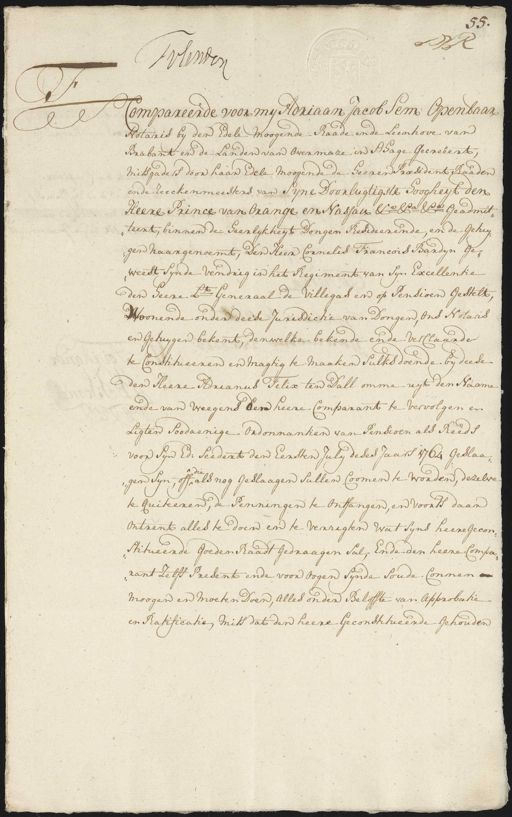 55.
F
Compareerde voor my Adriaan Jacob Sem Openbaar
Notaris by den Edele Moogende Raade ende Leenhove van
Braband en de Landen van Overmaze in s'Hage Gecreëert,
Mitsgade is door haar Edele Moogende de Heeren President, Raaden
ende Reeckenmeesters van Syne Doorlugtigste Hoogheyt den
Heere Prince van Orange en Nassau Geadmit-
teert, binnen de Heerlykheyt Dongen Resideerende, en de Getuy-
gen Naargenoemt, Den Heer Cornelis Francois Bardyn Ge-
weest Synde Vendrig in het Regiment van Syn Excellentie
den Heere Lt. Generaal de Villegas en op Pensioen Gestelt,
Woonende onder deese Jurisdictie van Dongen, Ons Notaris
en Getuygen bekent, denwelke bekende ende Verclaarde
te Constitueeren en Magtig te Maaken Sulks doende by deese
den Heere Adrianus Felix ten Hall omme uyt den Naame
ende van Weegens den heere Comparant te Vervolgen en
Ligten Soodaenige Ordonnantien van Pensioen als Reeds
voor Syn Ed: Seedert den Eersten July deses Jaars 1764 Geslaa-
gen Syn, off die als nog Geslaagen Sullen Coomen te Worden, dezelve
te Quiteeren, de Penningen te Ontfangen, en voorts daar
ontrent alles te doen en te Verrigten Wat Syns heere Gecon-
stitueerde Goeden Raadt Gedraagen Sal, Ende den heere Compa-
rant Zelfs Present ende voor Oogen Synde Soude Connen
Moogen en Moeten Doen, Alles onder Belofte van Approbatie
en Ratificatie, Mits dat den heere Geconstitueerde Gehouden